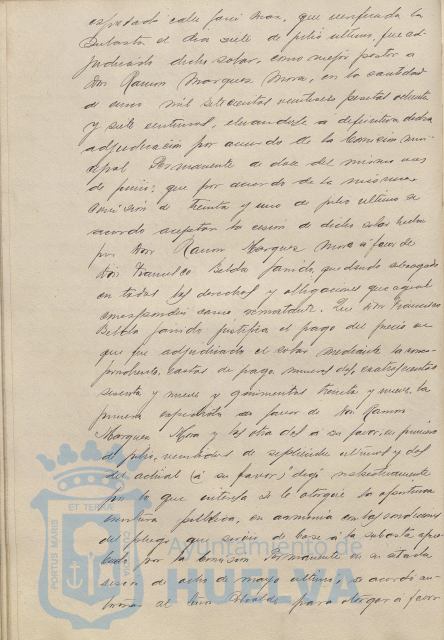 espresado calle José Nogu, que verificada la
subasta el dia siete de julio ultimo, fue ad-
judicado dicho solar, como mejor postor a
Don Ramon Marquez Mora, en la cantidad
de mil setecientas pesetas ochenta
y siete centimos, elevandose a definitiva dicha
adjudicacion por acuerdo de la Comision muni-
cipal Permanente de doce del mismo mes
de julio; que por acuerdo de la misma
Comision de treinta y uno de julio ultimo se
acordo aceptar la cesion de dicho solar hecha
por Don Ramon Marquez Mora a favor de
Don Francisco Beldda Janido, quedando subrogado
en todos los derechos y obligaciones que a aquel
correspondian como rematante. Que Don Francisco
Janido justifica el pago del precio en
que fue adjudicado el solar mediante los com-
probantes, cartas de pago, numeros dos cuatrocientos
sesenta y nueve y quinientos treinta y nueve, la
primera expedida a favor de Don Ramon
Marquez Mora y las otras dos a su favor, en primero
de julio, veintidos de septiembre ultimos y dos
del actual (a su favor) respectivamente
por lo que interesa se le otorgue la oportuna
escritura publica, en armonia con las condiciones
del pliego que sirvió de base a la subasta apro-
bado por la Comision Permanente en su citada
sesion de ocho de mayo ultimo, se acordó au-
torizar al Señor Alcalde para otorgar a favor
PORTUS MARIS ET TERRAE CUSTODIA
Ayuntamiento de
HUELVA